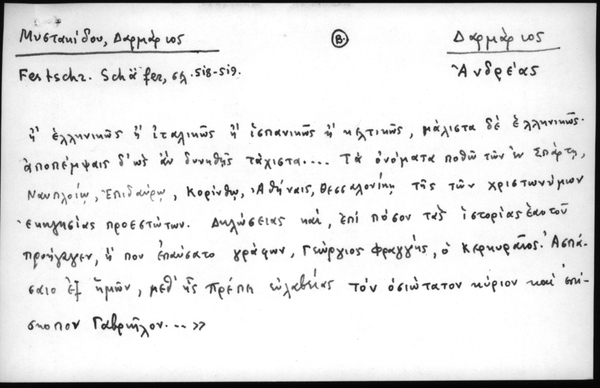 Μυστακίδου, Δαρμάριος Β. Δαρμάριος
Festschr. Schäfer, σελ. 518-519. Ἀνδρέας
ἢ ἑλληνικῶς ἢ ἰταλικῶς ἢ ἱσπανικῶς ἢ κελτικῶς, μάλιστα δὲ ἑλληνικῶς.
ἀποπέμψαις δ' ὡς ἂν δυνηθῇς τάχιστα.... Τὰ ὀνόματα ποθῶ τῶν ἐν Σπάρτῃ,
Ναυπλοίῳ, Ἐπιδαύρῳ, Κορίνθῳ, Ἀθήναις, Θεσσαλονίκῃ τῆς τῶν χριστωνύμων
ἐκκλησίας προεστώτων. Δηλώσειας καὶ, ἐπὶ πόσον τὰς ἱστορίας ἑαυτοῦ
προήγαγεν, ἢ που ἐπαύσατο γράφων, Γεώργιος Φραγγῆς, ὁ Κερκυραῖος. Ἀσπά-
σαιο ἐξ ἡμῶν, μεθ' ἧς πρέπει εὐλαβείας τὸν ὁσιώτατον κύριον καὶ ἐπί-
σκοπον Γαβριῆλον...»